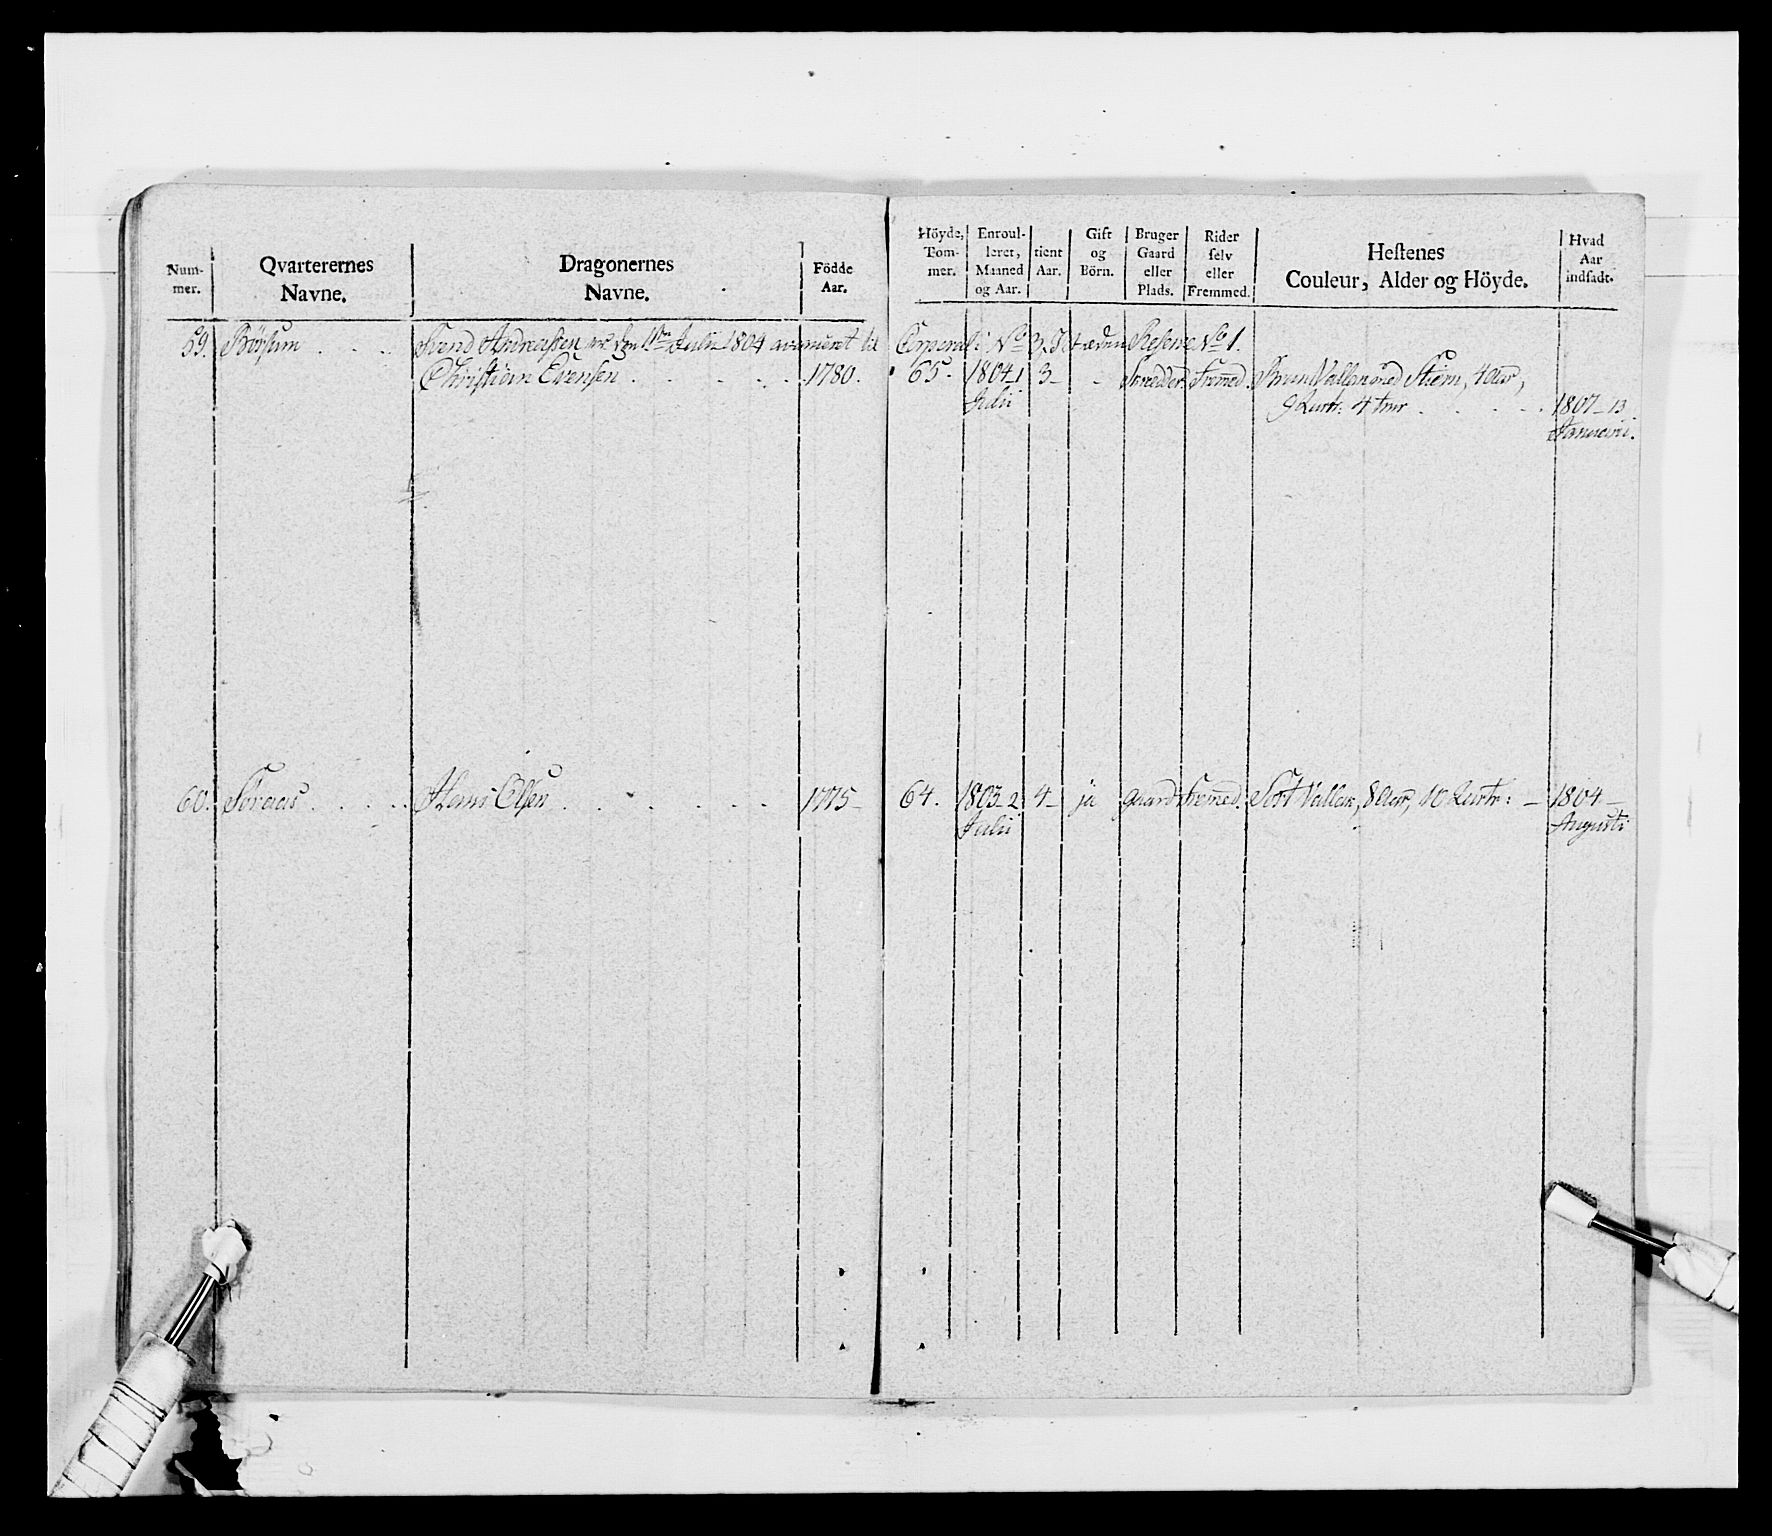 Num-
mer.
Qvarterernes
Navne.
Dragonernes
Navne.
Födde
Aar.
Höyde,
Tom-
mer.
Enroul-
leret,
Maaned
og Aar.
tient
Aar.
Gift
og
Börn.
Bruger
Gaard
eller
Plads.
Rider
selv
eller
Fremmed.
Hestenes
Couleur, Alder og Höyde.
Hvad
Aar
indsadt.
59. Börsum . . . Svend Andreasen er den 1te Julii 1804 avanceret til Corporal i No 3, Reserve No 1.
Christian Evensen . . . . . . 1780. 65. 1804 1 3 - - Skredder. Fremed. Brun Vallan med Stiern, 4 Aar,
Julii 9 Qvrtr: 4 tmr . . . . 1807 - 13
Januarii.
60. Foraas . . . . Hans Olsen . . . . . . 1775 - 64. 1803 2 4 - ja gaard Fremed. Sort Vallak, 8 Aar, 10 Qvrtr: - 1804 -
Julii Augusti